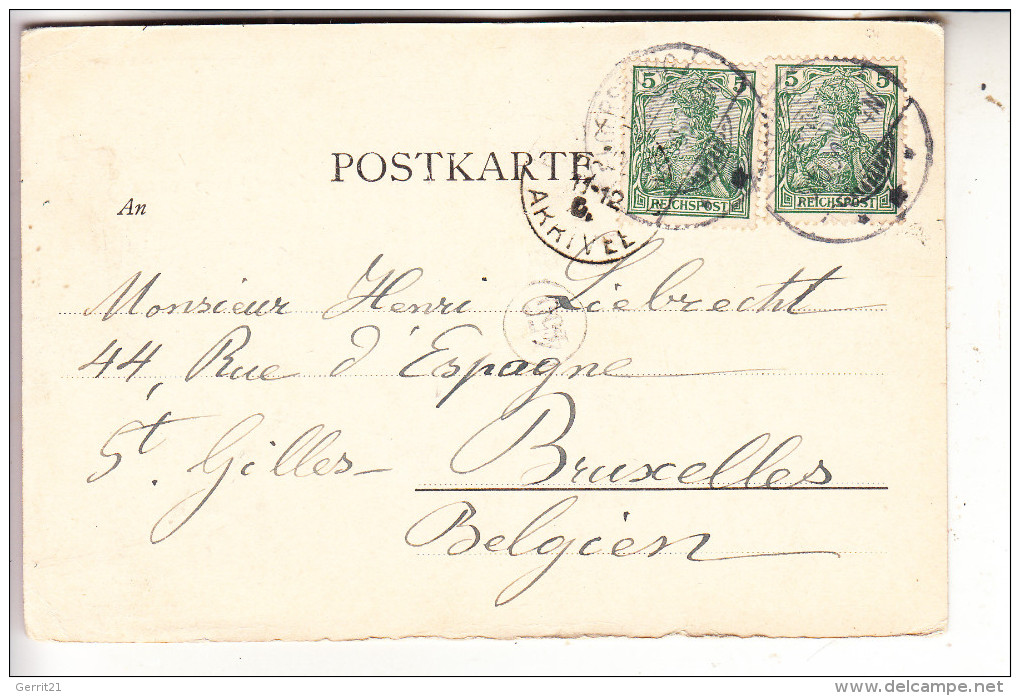 5 5
5 5
REICHSPOST
REICHSPOST
POSTKARTE
11-12
ARRIVEE
An
Monsieur Henri Liebrecht
44, Rue d'Espagne
St. Gilles - Bruxelles
Belgien
Gerrit21
www.delcampe.net